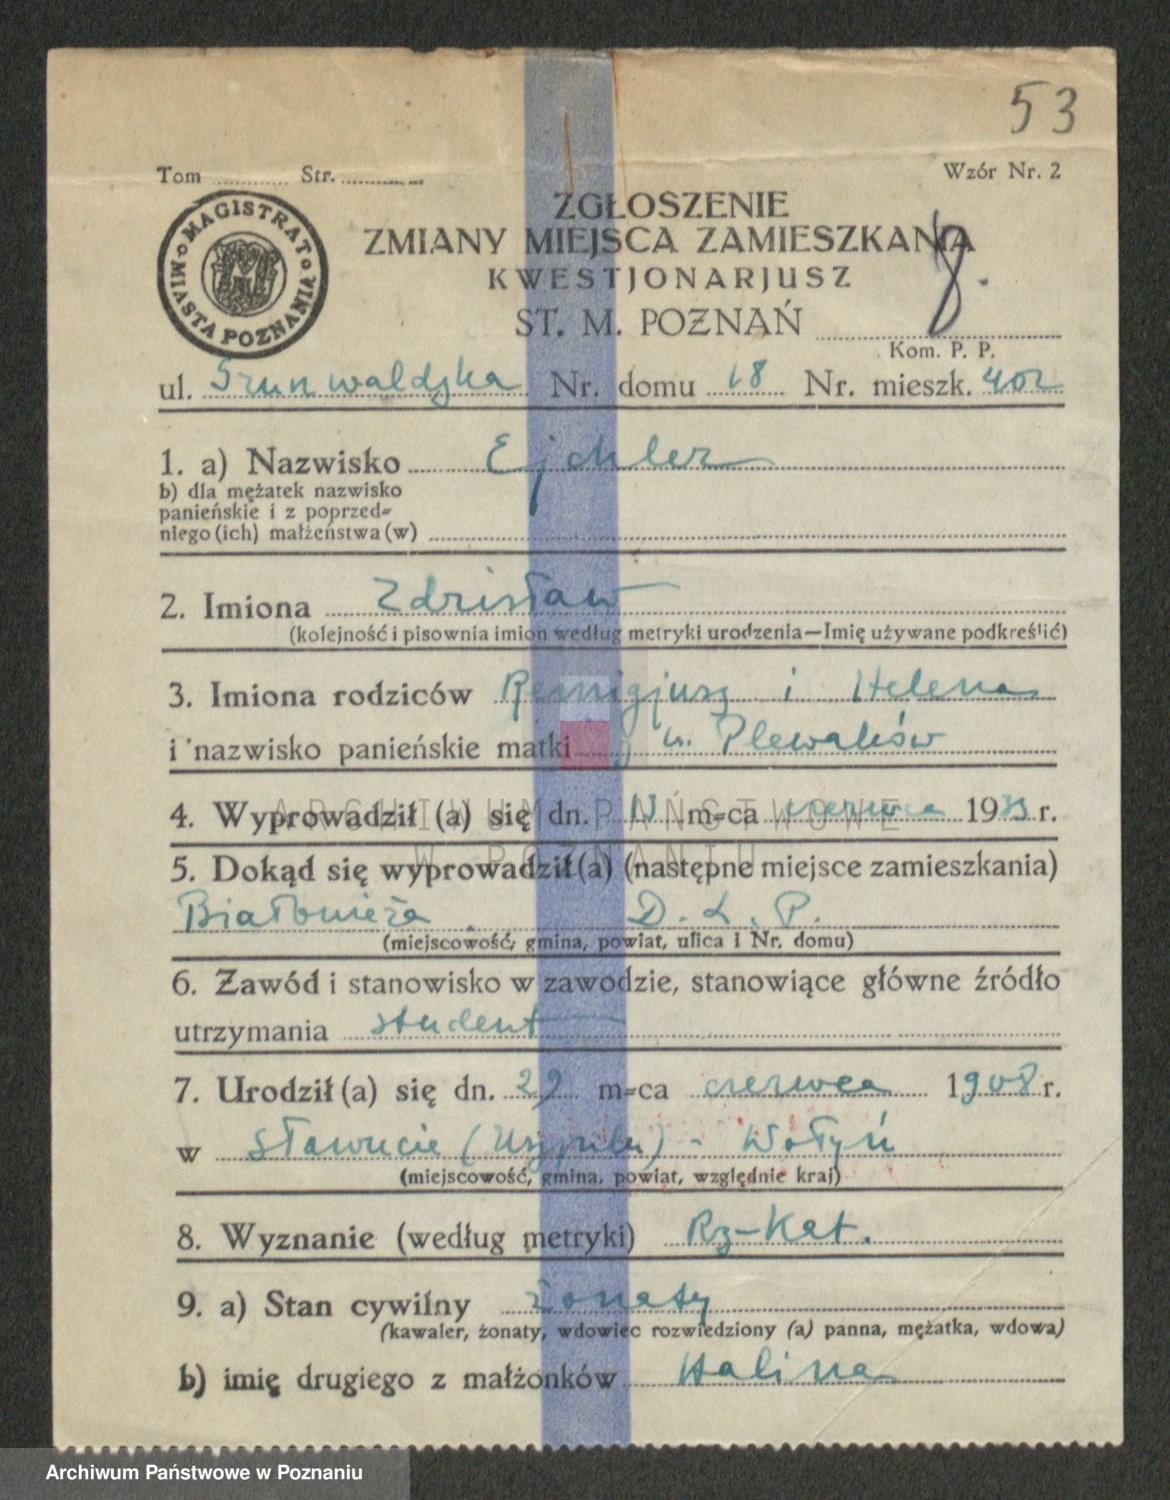 53
Tom Str.
Wzór Nr. 2
MAGISTRAT MIASTA POZNANIA
ZGŁOSZENIE
ZMIANY MIEJSCA ZAMIESZKANIA
KWESTJONARJUSZ
ST. M. POZNAŃ
Kom. P. P.
ul. Grunwaldzka Nr. domu 18 Nr. mieszk. 402
1. a) Nazwisko Ejchler
b) dla mężatek nazwisko
panieńskie i z poprzed=
niego (ich) małżeństwa (w)
2. Imiona Zdzisław
(kolejność i pisownia imion według metryki urodzenia—Imię używane podkreślić)
3. Imiona rodziców Remigjusz i Helena
i nazwisko panieńskie matki z Plewaków
4. Wyprowadził (a) się dn. m=ca czerwca 1933 r.
ARCHIWUM PAŃSTWOWE
W POZNANIU
5. Dokąd się wyprowadził(a) (następne miejsce zamieszkania)
Białowieża D. L. P.
(miejscowość, gmina, powiat, ulica i Nr. domu)
6. Zawód i stanowisko w zawodzie, stanowiące główne źródło
utrzymania student
7. Urodził (a) się dn. 29 m=ca czerwca 1908 r.
w Sławucie - Wołyń
(miejscowość, gmina, powiat, względnie kraj)
8. Wyznanie (według metryki) Rz-Kat.
9. a) Stan cywilny żonaty
(kawaler, żonaty, wdowiec rozwiedziony (a) panna, mężatka, wdowa)
b) imię drugiego z małżonków Halina
Archiwum Państwowe w Poznaniu